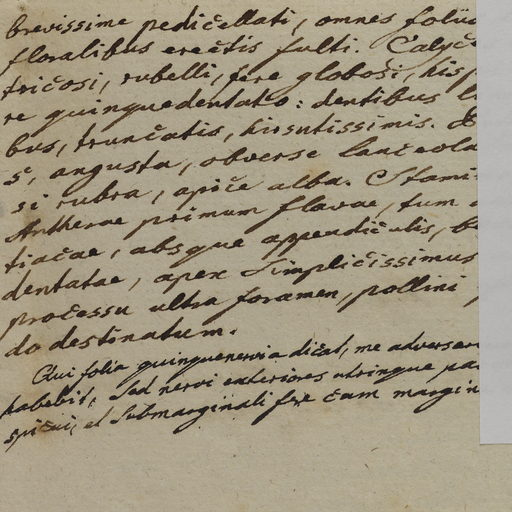 brevissime pedicellati, omnes folii
floralibus erectis fulti. Calyc
tricosi, rubelli, fere globosi, his
re quinquedentato: dentibus
bus, truncatis, hirsutissimis.
si, angusta, obverse lanceola
si rubra, apice alba. Stami
Antherae primum flavae, tum
tiacae, absque appendiculis, b
dentatae, apex simplicissimus
processu ultra foramen, pollini
do destinatum.
Qui folia quinquenervia dicat, me adversar
habebit, sed nervi exteriores utrinque pa
spicui, et submarginali fere cum margin